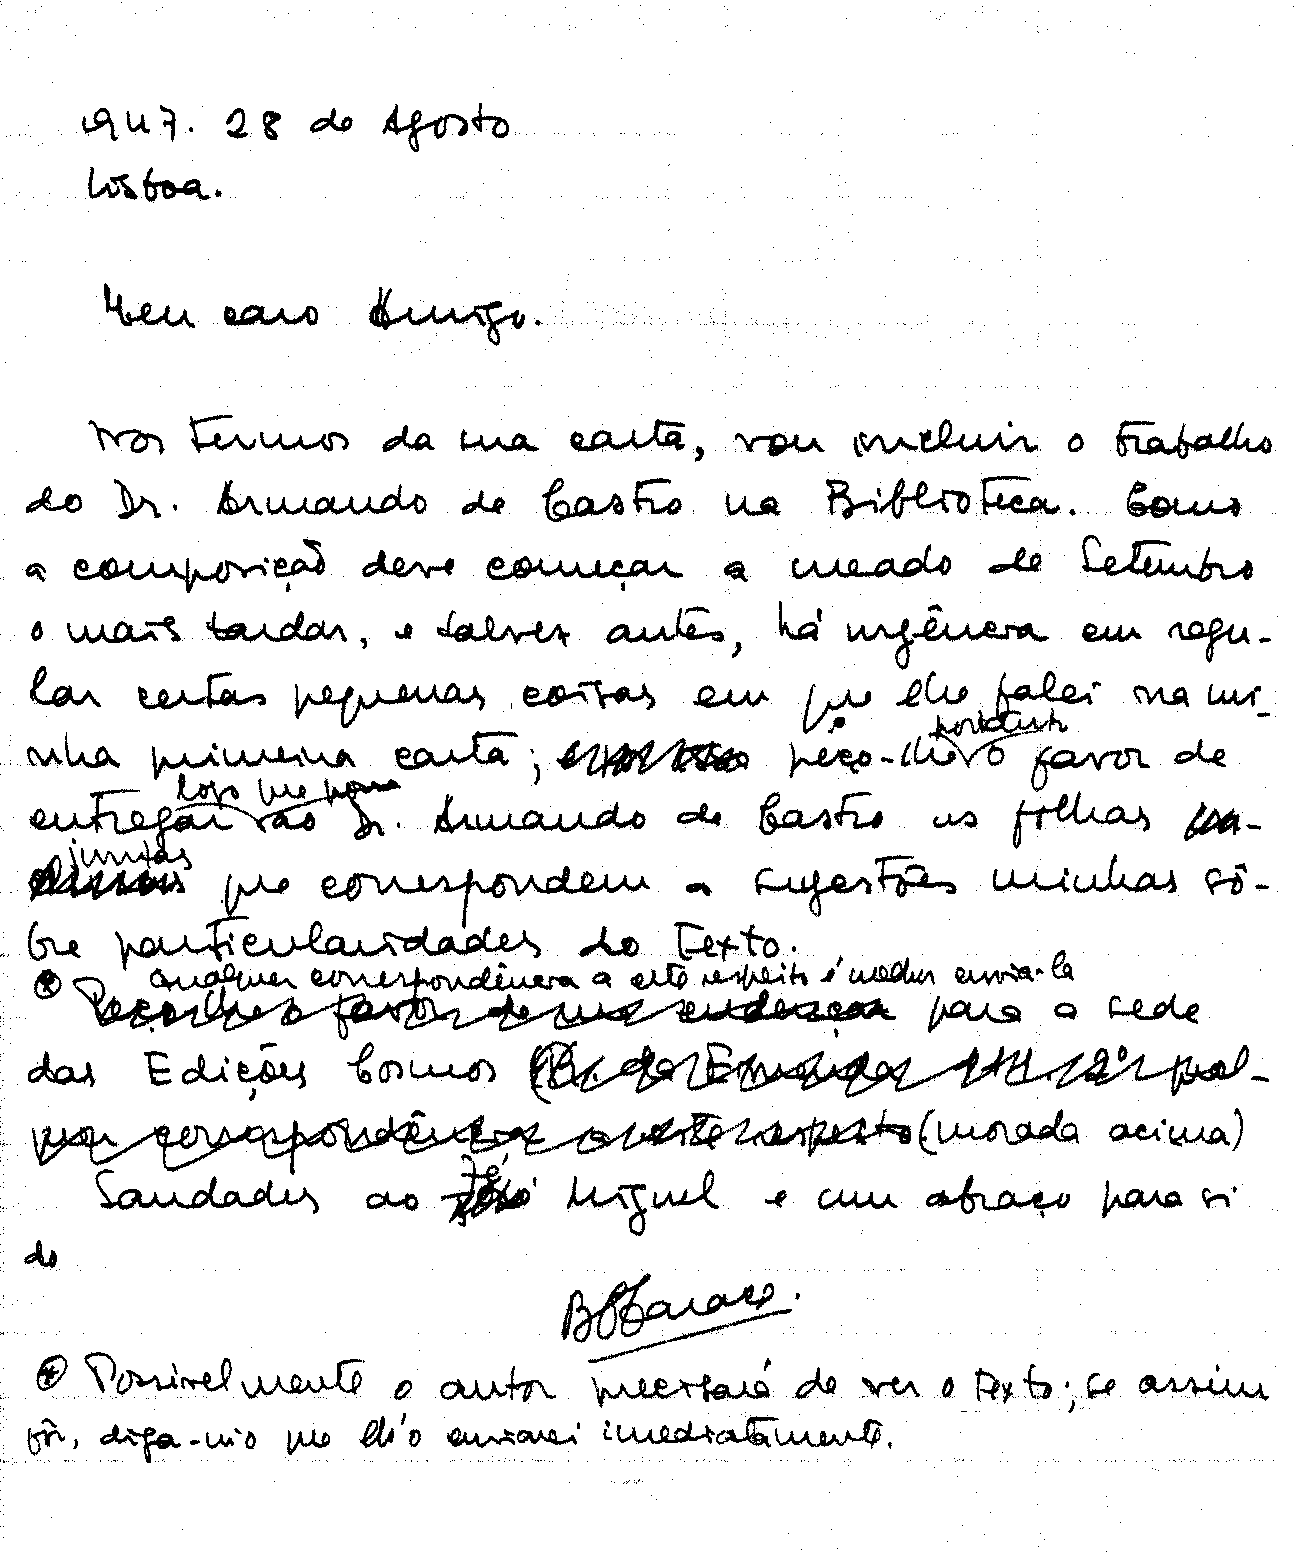 1947. 28 de Agosto
Lisboa.
Meu caro Amigo.
Nos termos da sua carta, vou incluir o trabalho
do Dr. Armando de Castro na Biblioteca. Como
a composição deve começar a meado de Setembro
o mais tardar, e talvez antes, há urgência em regu-
lar certas pequenas coisas em que lhe falei na mi-
nha primeira carta; peço-lhe o favor de
logo que possa
entregar ao Dr. Armando de Castro as folhas
juntas
que correspondem a sugestões minhas sô-
bre particularidades do texto.
qualquer correspondência a este respeito é melhor enviar-la
⊛ Peço-lhe o favor de me endereçar para a sede
das Edições Cosmos (R. da Emenda, 111. 2º) qual-
quer correspondência a este respeito (morada acima)
Saudades ao Zé Miguel e um abraço para si
do
BJCaraça.
⊛ Possivelmente o autor precisará de ver o texto; se assim
fôr, diga-mo que lh'o enviarei imediatamente.